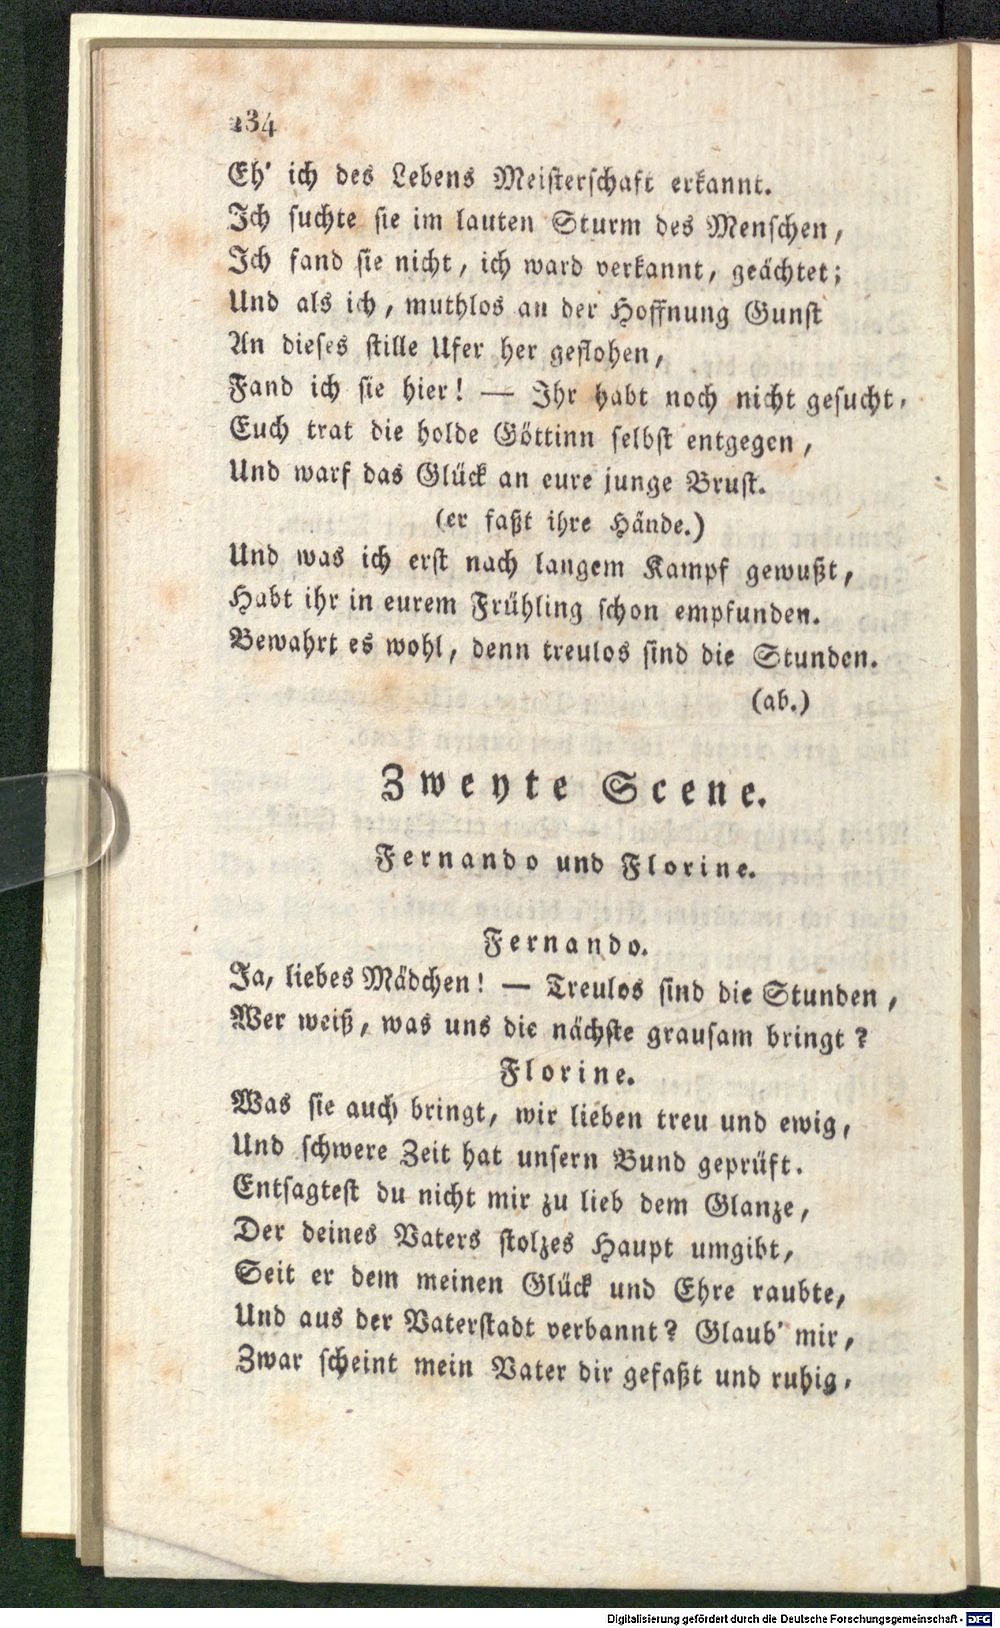 134
Eh' ich des Lebens Meisterschaft erkannt.
Ich suchte sie im lauten Sturm des Menschen,
Ich fand sie nicht, ich ward verkannt, geächtet;
Und als ich, muthlos an der Hoffnung Gunst
An dieses stille Ufer her geflohen,
Fand ich sie hier! — Ihr habt noch nicht gesucht,
Euch trat die holde Göttinn selbst entgegen,
Und warf das Glück an eure junge Brust.
(er faßt ihre Hände.)
Und was ich erst nach langem Kampf gewußt,
Habt ihr in eurem Frühling schon empfunden.
Bewahrt es wohl, denn treulos sind die Stunden.
(ab.)
Zweyte Scene.
Fernando und Florine.
Fernando.
Ja, liebes Mädchen! — Treulos sind die Stunden,
Wer weiß, was uns die nächste grausam bringt?
Florine.
Was sie auch bringt, wir lieben treu und ewig,
Und schwere Zeit hat unsern Bund geprüft.
Entsagtest du nicht mir zu lieb dem Glanze,
Der deines Vaters stolzes Haupt umgibt,
Seit er dem meinen Glück und Ehre raubte,
Und aus der Vaterstadt verbannt? Glaub' mir,
Zwar scheint mein Vater dir gefaßt und ruhig,
Digitalisierung gefördert durch die Deutsche Forschungsgemeinschaft - DFG